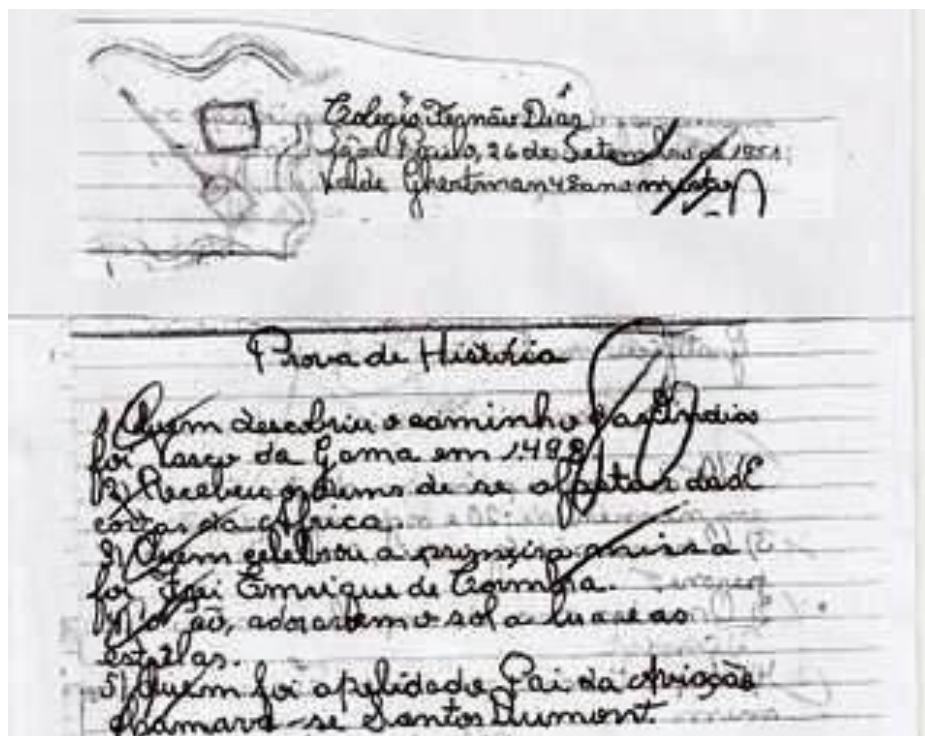 Colegio Fernão Dias
São Paulo, 26 de Setembro de 1951
Valde Ghertman 4º ano misto
Prova de História
1) Quem descobriu o caminho das Índias
foi Vasco da Gama em 1498
2) Recebeu ordems de se afastar das
costas da África.
3) Quem celebrou a primeira missa
foi Frei Emrique de Coimbra.
4) adoravam o sol a lua e as
estrelas.
5) Quem foi apelidado Pai da Aviação
chamava-se Santos Dumont.